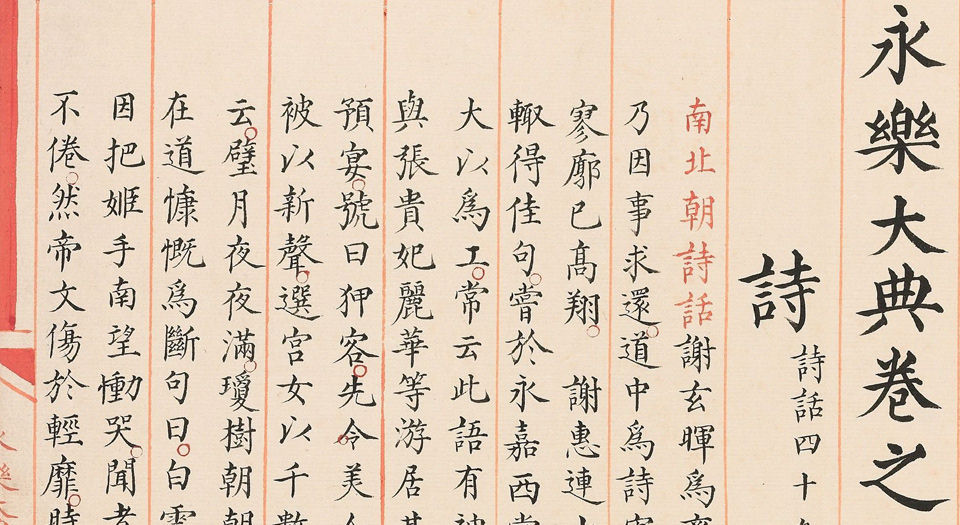 永樂大典卷之
詩 詩話四十
南北朝詩話謝玄暉為
乃因事求還道中為詩
寥廓已高翔 謝惠連
輙得佳句嘗於永嘉西
大以為工常云此語有
與張貴妃麗華等游居
預宴號曰狎客先令美
被以新聲選宮女以千
云璧月夜夜滿瓊樹朝
在道慷慨為斷句曰白
因把姬手南望慟哭聞
不倦然帝文傷於輕靡